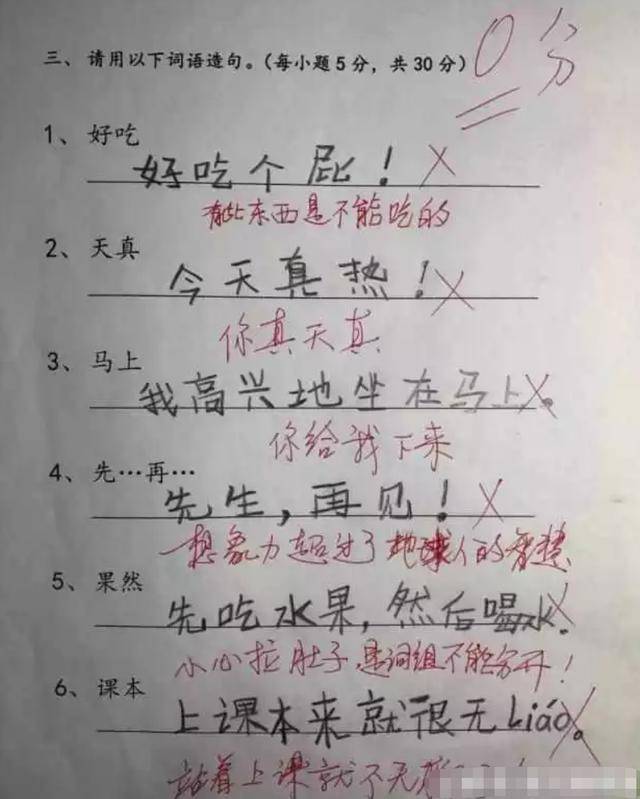 三、请用以下词语造句。(每小题5分，共30分)
0分
1、好吃
好吃个屁！
有些东西是不能吃的
2、天真
今天真热！
你真天真
3、马上
我高兴地坐在马上。
你给我下来
4、先…再…
先生，再见！
想象力超过了地球人的智慧
5、果然
先吃水果，然后喝水。
小心拉肚子，是词组不能分开！
6、课本
上课本来就很无Liáo。
站着上课就不无